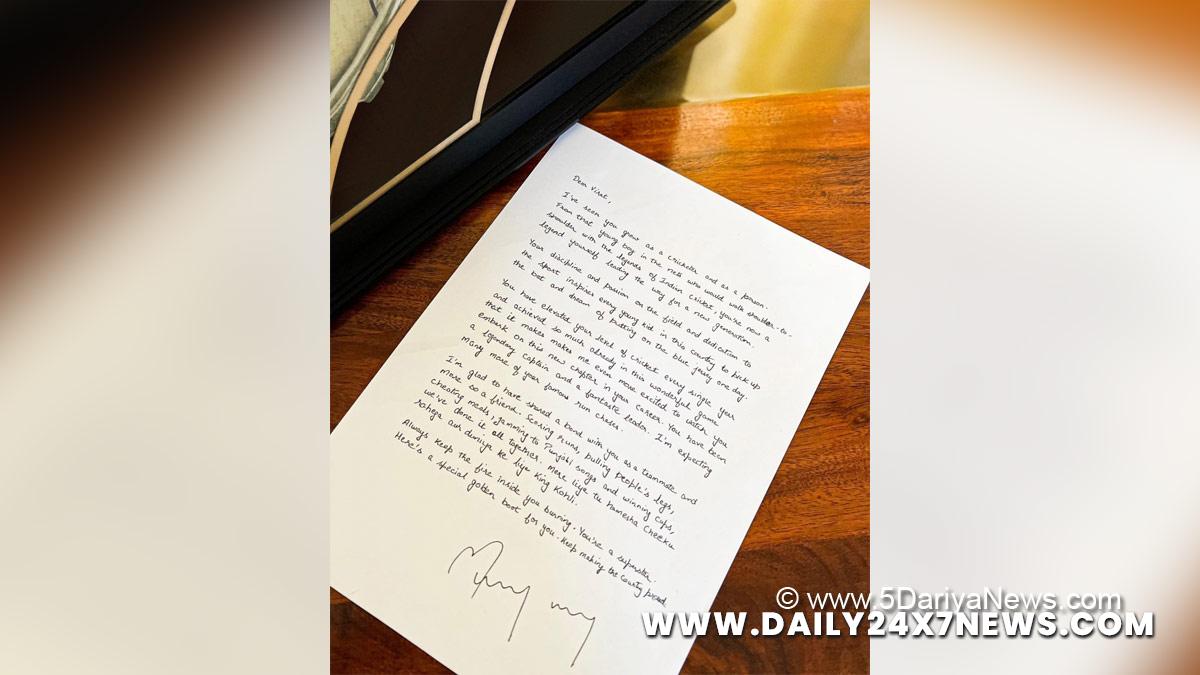 Dear Virat,
I've seen you grow as a cricketer and as a person.
From that young boy in the nets who would walk shoulder-to-
shoulder with the legends of Indian cricket, you're now a
legend yourself leading the way for a new generation.
Your discipline and passion on the field and dedication to
the sport inspires every young kid in this country to pick up
the bat and dream of putting on the blue jersey one day.
You have elevated your level of cricket every single year
and achieved so much already in this wonderful game
that it makes makes me even more excited to watch you
embark on this new chapter in your career. You have been
a legendary captain and a fantastic leader. I'm expecting
many more of your famous run chases.
I'm glad to have shared a bond with you as a teammate and
more so a friend. Scoring runs, pulling people's legs,
cheating meals, jamming to Punjabi songs and winning cups,
we've done it all together. Mere liye tu hamesha Cheeku
rahega aur duniya ke liye King Kohli.
Always keep the fire inside you burning. You're a superstar.
Here's a special golden boot for you. Keep making the country proud
© www.5DariyaNews.com
WWW.DAILY24X7NEWS.COM